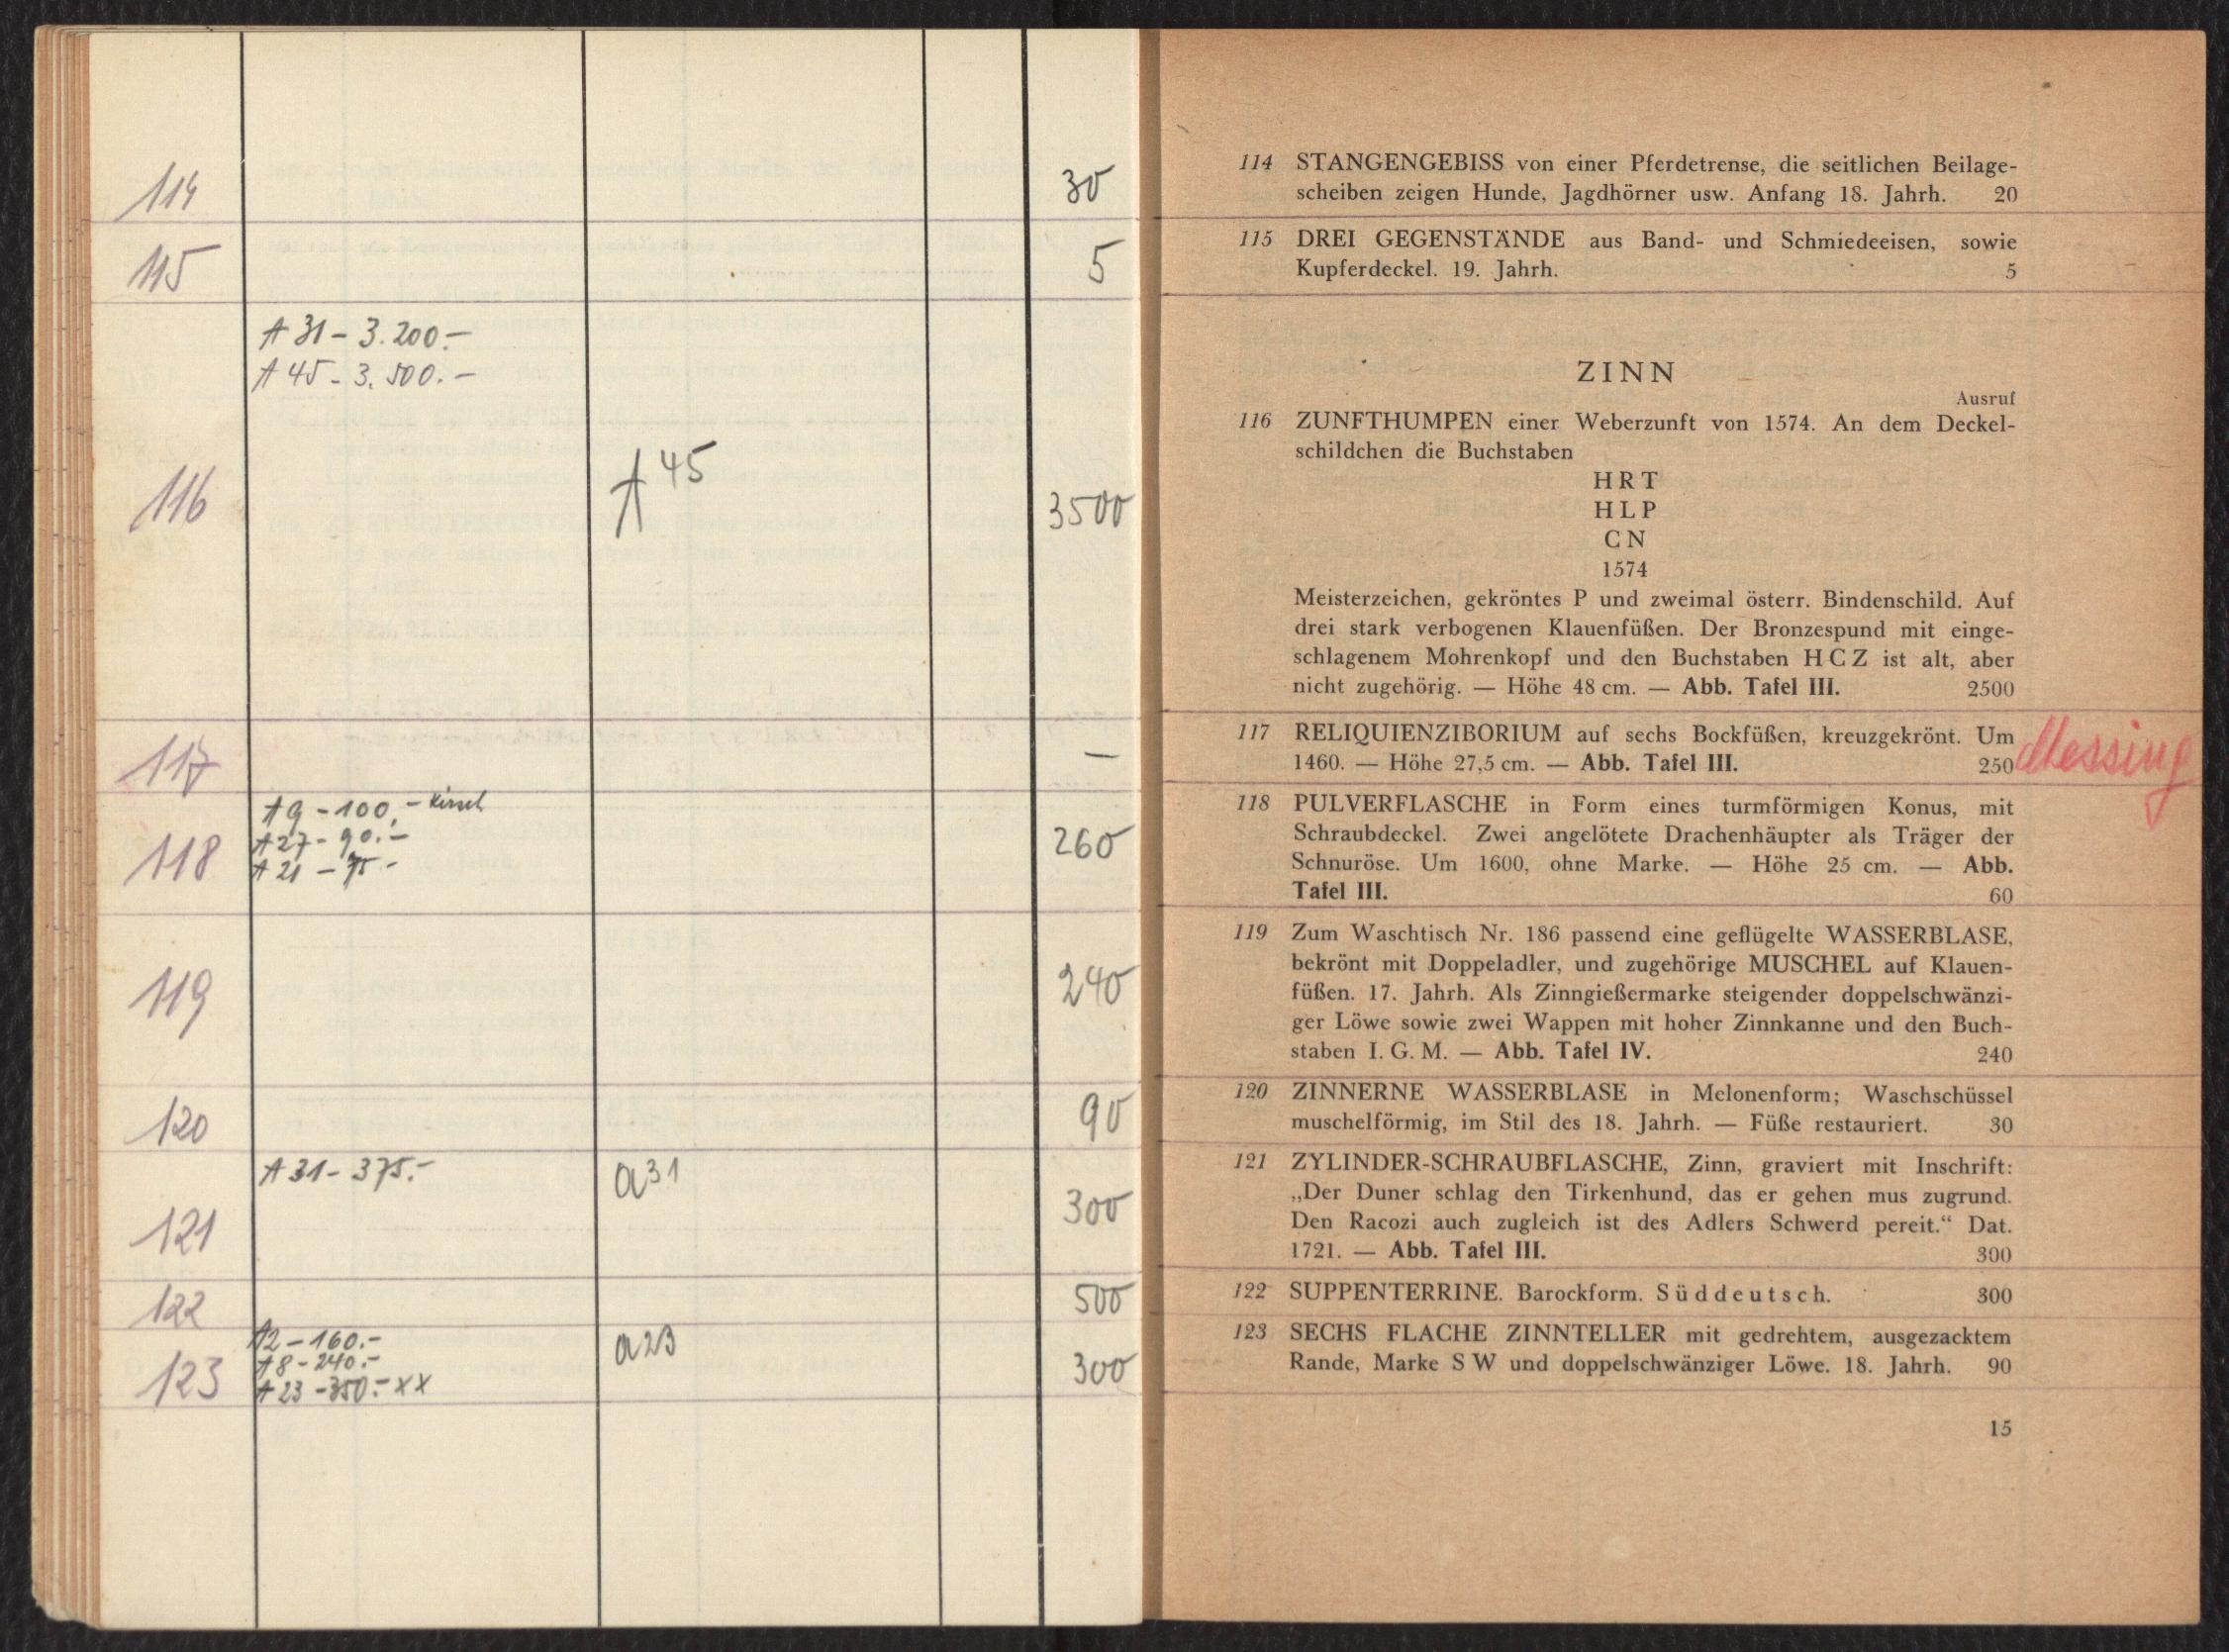 114
30
115
5
A 31 - 3.200.-
A 45 - 3.500.-
116
A 45
3500
117
—
A 9 - 100,-
A 27 - 90.-
A 21 - 75.-
118
260
119
240
120
90
A 31 - 375.-
a 31
121
300
122
500
A 2 - 160.-
A 8 - 240.-
A 23 - 350.- xx
a 23
123
300
114 STANGENGEBISS von einer Pferdetrense, die seitlichen Beilage-
scheiben zeigen Hunde, Jagdhörner usw. Anfang 18. Jahrh. 20
115 DREI GEGENSTÄNDE aus Band- und Schmiedeeisen, sowie
Kupferdeckel. 19. Jahrh. 5
ZINN
Ausruf
116 ZUNFTHUMPEN einer Weberzunft von 1574. An dem Deckel-
schildchen die Buchstaben
HRT
HLP
CN
1574
Meisterzeichen, gekröntes P und zweimal österr. Bindenschild. Auf
drei stark verbogenen Klauenfüßen. Der Bronzespund mit einge-
schlagenem Mohrenkopf und den Buchstaben H C Z ist alt, aber
nicht zugehörig. — Höhe 48 cm. — Abb. Tafel III. 2500
117 RELIQUIENZIBORIUM auf sechs Bockfüßen, kreuzgekrönt. Um
1460. — Höhe 27,5 cm. — Abb. Tafel III. 250
Messing
118 PULVERFLASCHE in Form eines turmförmigen Konus, mit
Schraubdeckel. Zwei angelötete Drachenhäupter als Träger der
Schnuröse. Um 1600, ohne Marke. — Höhe 25 cm. — Abb.
Tafel III. 60
119 Zum Waschtisch Nr. 186 passend eine geflügelte WASSERBLASE,
bekrönt mit Doppeladler, und zugehörige MUSCHEL auf Klauen-
füßen. 17. Jahrh. Als Zinngießermarke steigender doppelschwänzi-
ger Löwe sowie zwei Wappen mit hoher Zinnkanne und den Buch-
staben I. G. M. — Abb. Tafel IV. 240
120 ZINNERNE WASSERBLASE in Melonenform; Waschschüssel
muschelförmig, im Stil des 18. Jahrh. — Füße restauriert. 30
121 ZYLINDER-SCHRAUBFLASCHE, Zinn, graviert mit Inschrift:
„Der Duner schlag den Tirkenhund, das er gehen mus zugrund.
Den Racozi auch zugleich ist des Adlers Schwerd pereit.“ Dat.
1721. — Abb. Tafel III. 300
122 SUPPENTERRINE. Barockform. Süddeutsch. 300
123 SECHS FLACHE ZINNTELLER mit gedrehtem, ausgezacktem
Rande, Marke S W und doppelschwänziger Löwe. 18. Jahrh. 90
15